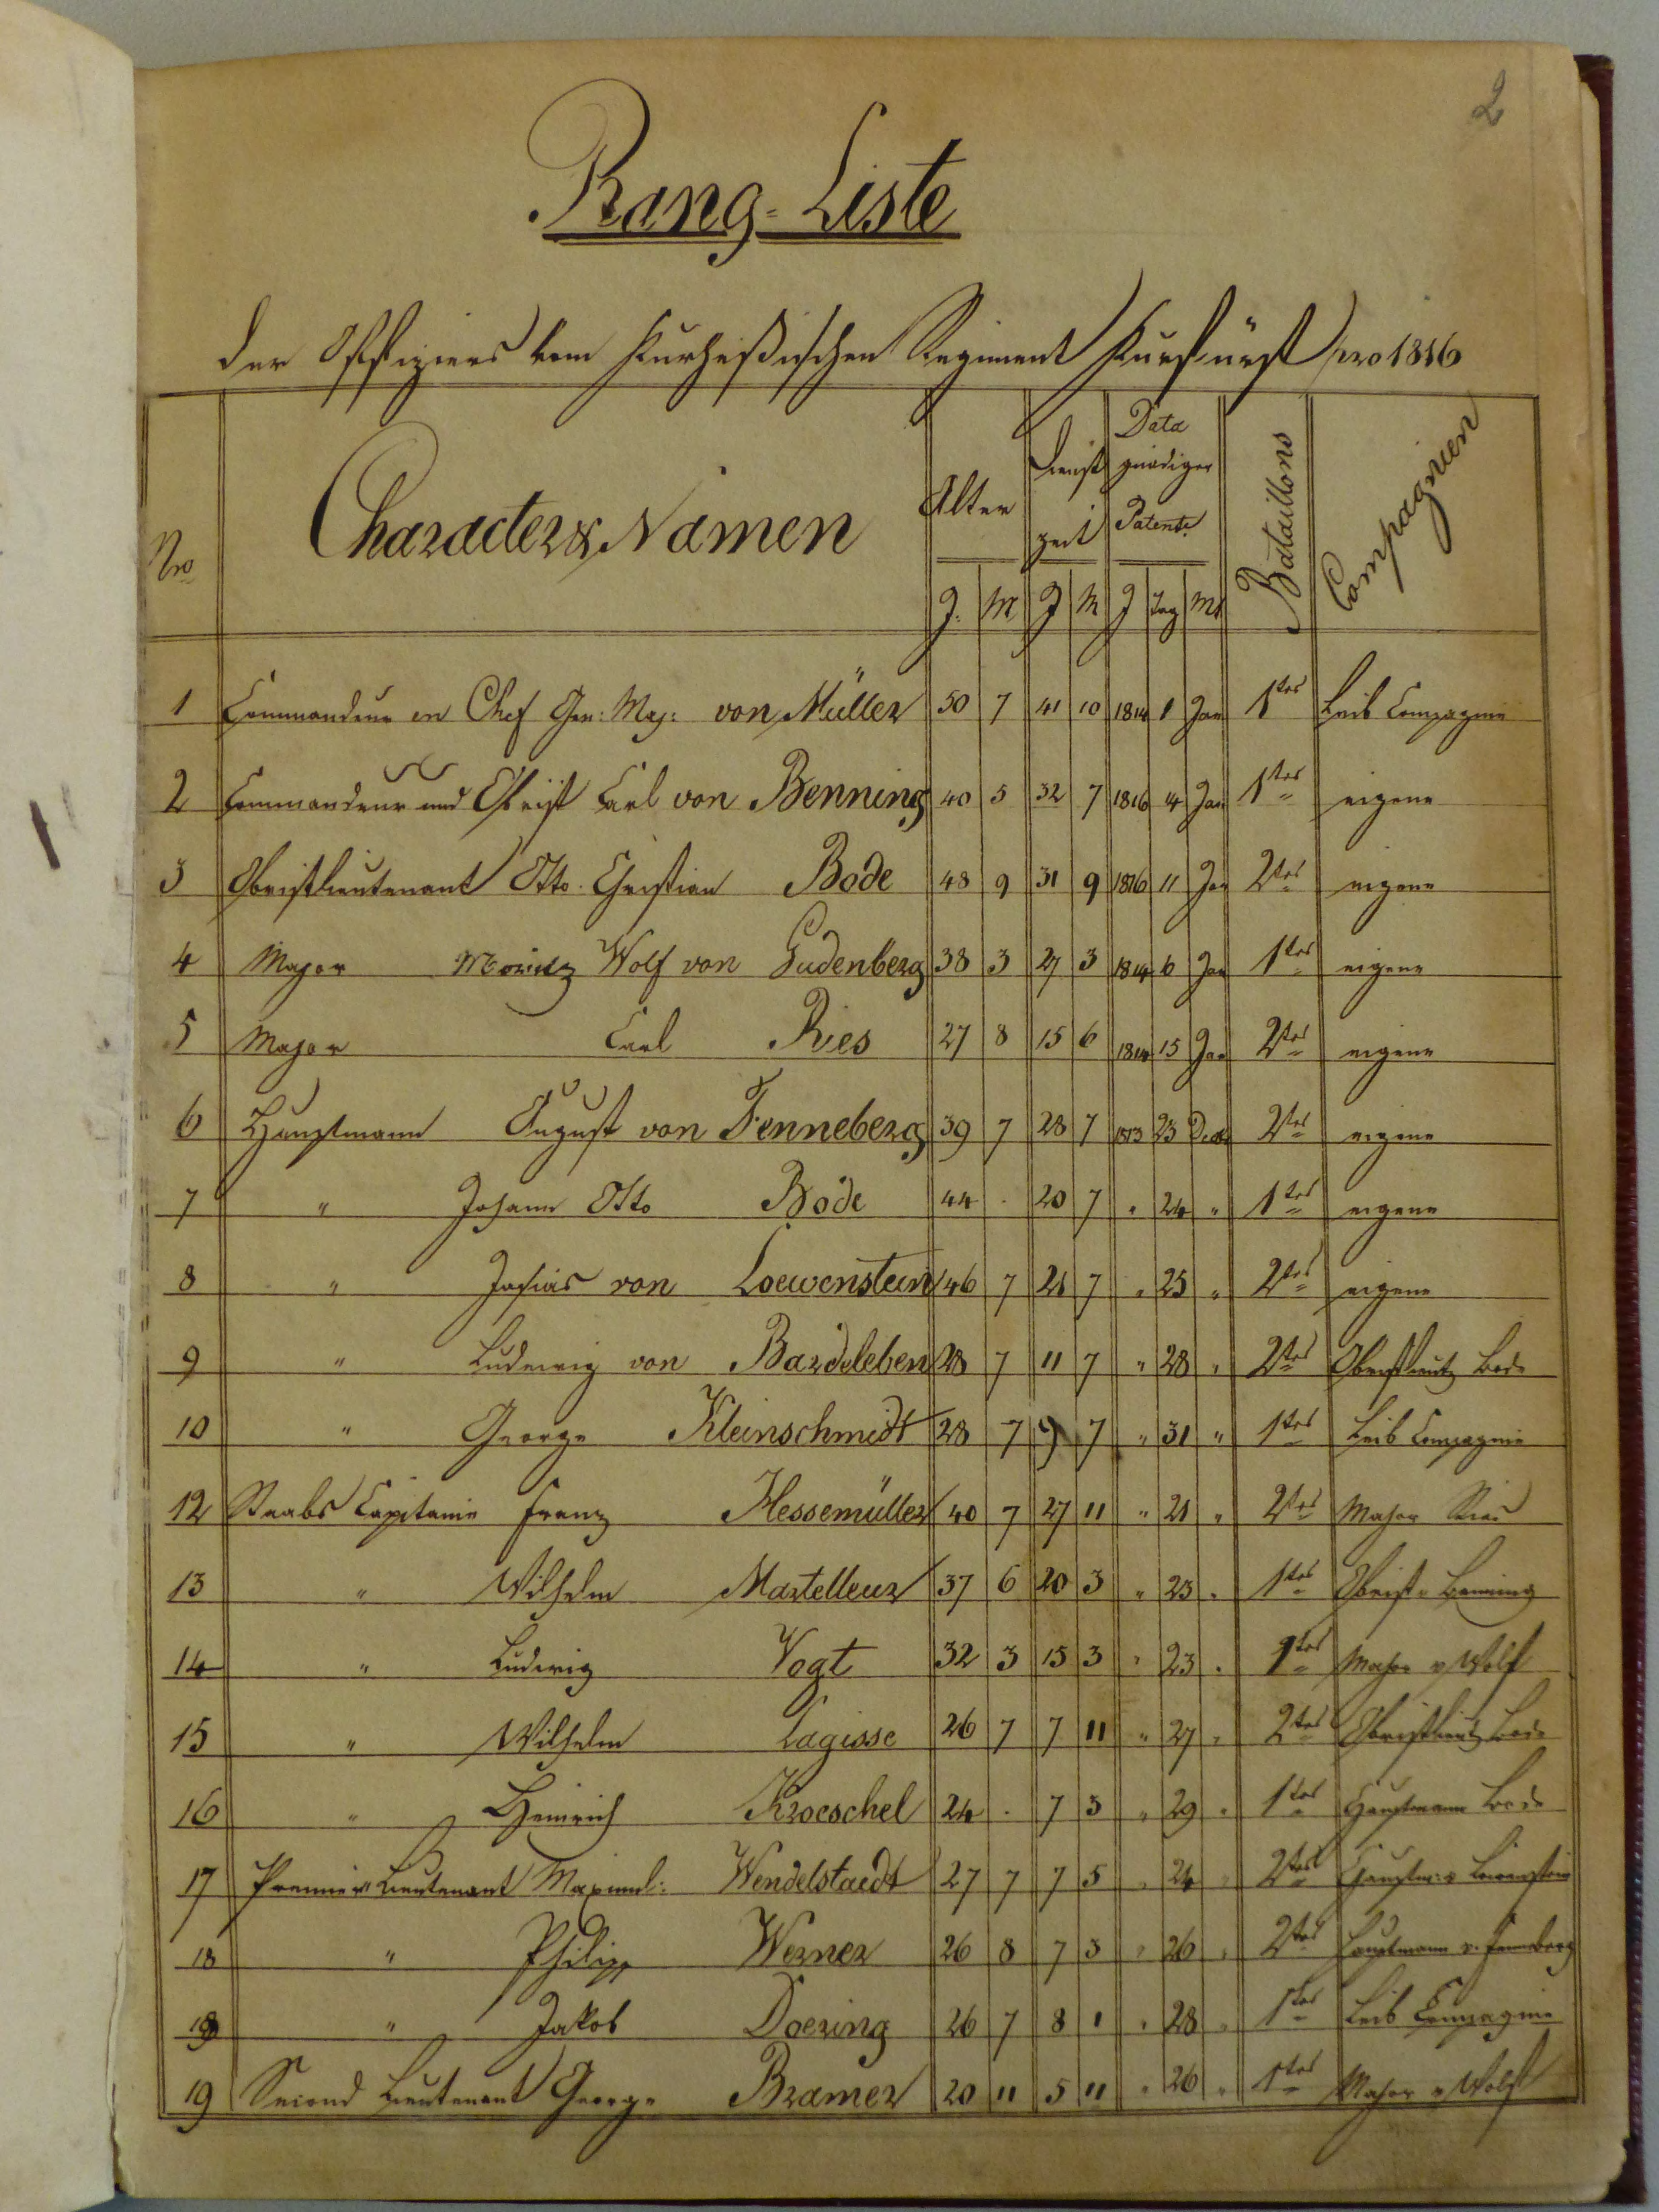 2
Rang-Liste
der Offiziers vom Kurheßischen Regiment Kurfürst pro 1816
Nro Character & Namen Alter Dienst zeit Data gnädiger Patente Bataillons Compagnien
J. M J M J Tag Mt
1 Commandeur en Chef Gen: Maj: von Müller 50 7 41 10 1814 1 Jan 1tes Leib Compagnie
2 Commandeur und Obrist Carl von Benning 40 5 32 7 1816 4 Jan 1tes eigene
3 Obristlieutenant Otto Christian Bode 48 9 31 9 1816 11 Jan 2tes eigene
4 Major Moritz Wolf von Gudenberg 38 3 27 3 1814 6 Jan 1tes eigene
5 Major Carl Ries 27 8 15 6 1814 15 Jan 2tes eigene
6 Hauptmann August von Fenneberg 39 7 28 7 1813 23 Decbr 2tes eigene
7 " Johann Otto Bode 44 . 20 7 " 24 " 1tes eigene
8 " Josias von Loewenstein 46 7 21 7 " 25 " 2tes eigene
9 " Ludewig von Bardeleben 28 7 11 7 " 28 " 2tes Obristlieut Bode
10 " George Kleinschmidt 28 7 9 7 " 31 " 1tes Leib Compagnie
12 Staabs Capitaine Franz Hessemüller 40 7 27 11 " 21 " 2tes Major Ries
13 " Wilhelm Martelleur 37 6 20 3 " 23 " 1tes Obrist v Benning
14 " Ludewig Vogt 32 3 15 3 " 23 " 1tes Major v Wolf
15 " Wilhelm Lagisse 26 7 7 11 " 27 " 2tes Obristlieut Bode
16 " Heinrich Kroeschel 24 . 7 3 " 29 " 1tes Hauptmann Bode
17 Premier Lieutenant Maximil: Wendelstaedt 27 7 7 5 " 24 " 2tes Hauptm: v Loewenstein
18 " Philipp Werner 26 8 7 3 " 26 " 2tes Hauptmann v. Fenneberg
18 " Jakob Doering 26 7 8 1 " 28 " 1tes Leib Compagnie
19 Second Lieutenant George Bramer 20 11 5 11 " 26 " 1tes Major v Wolf